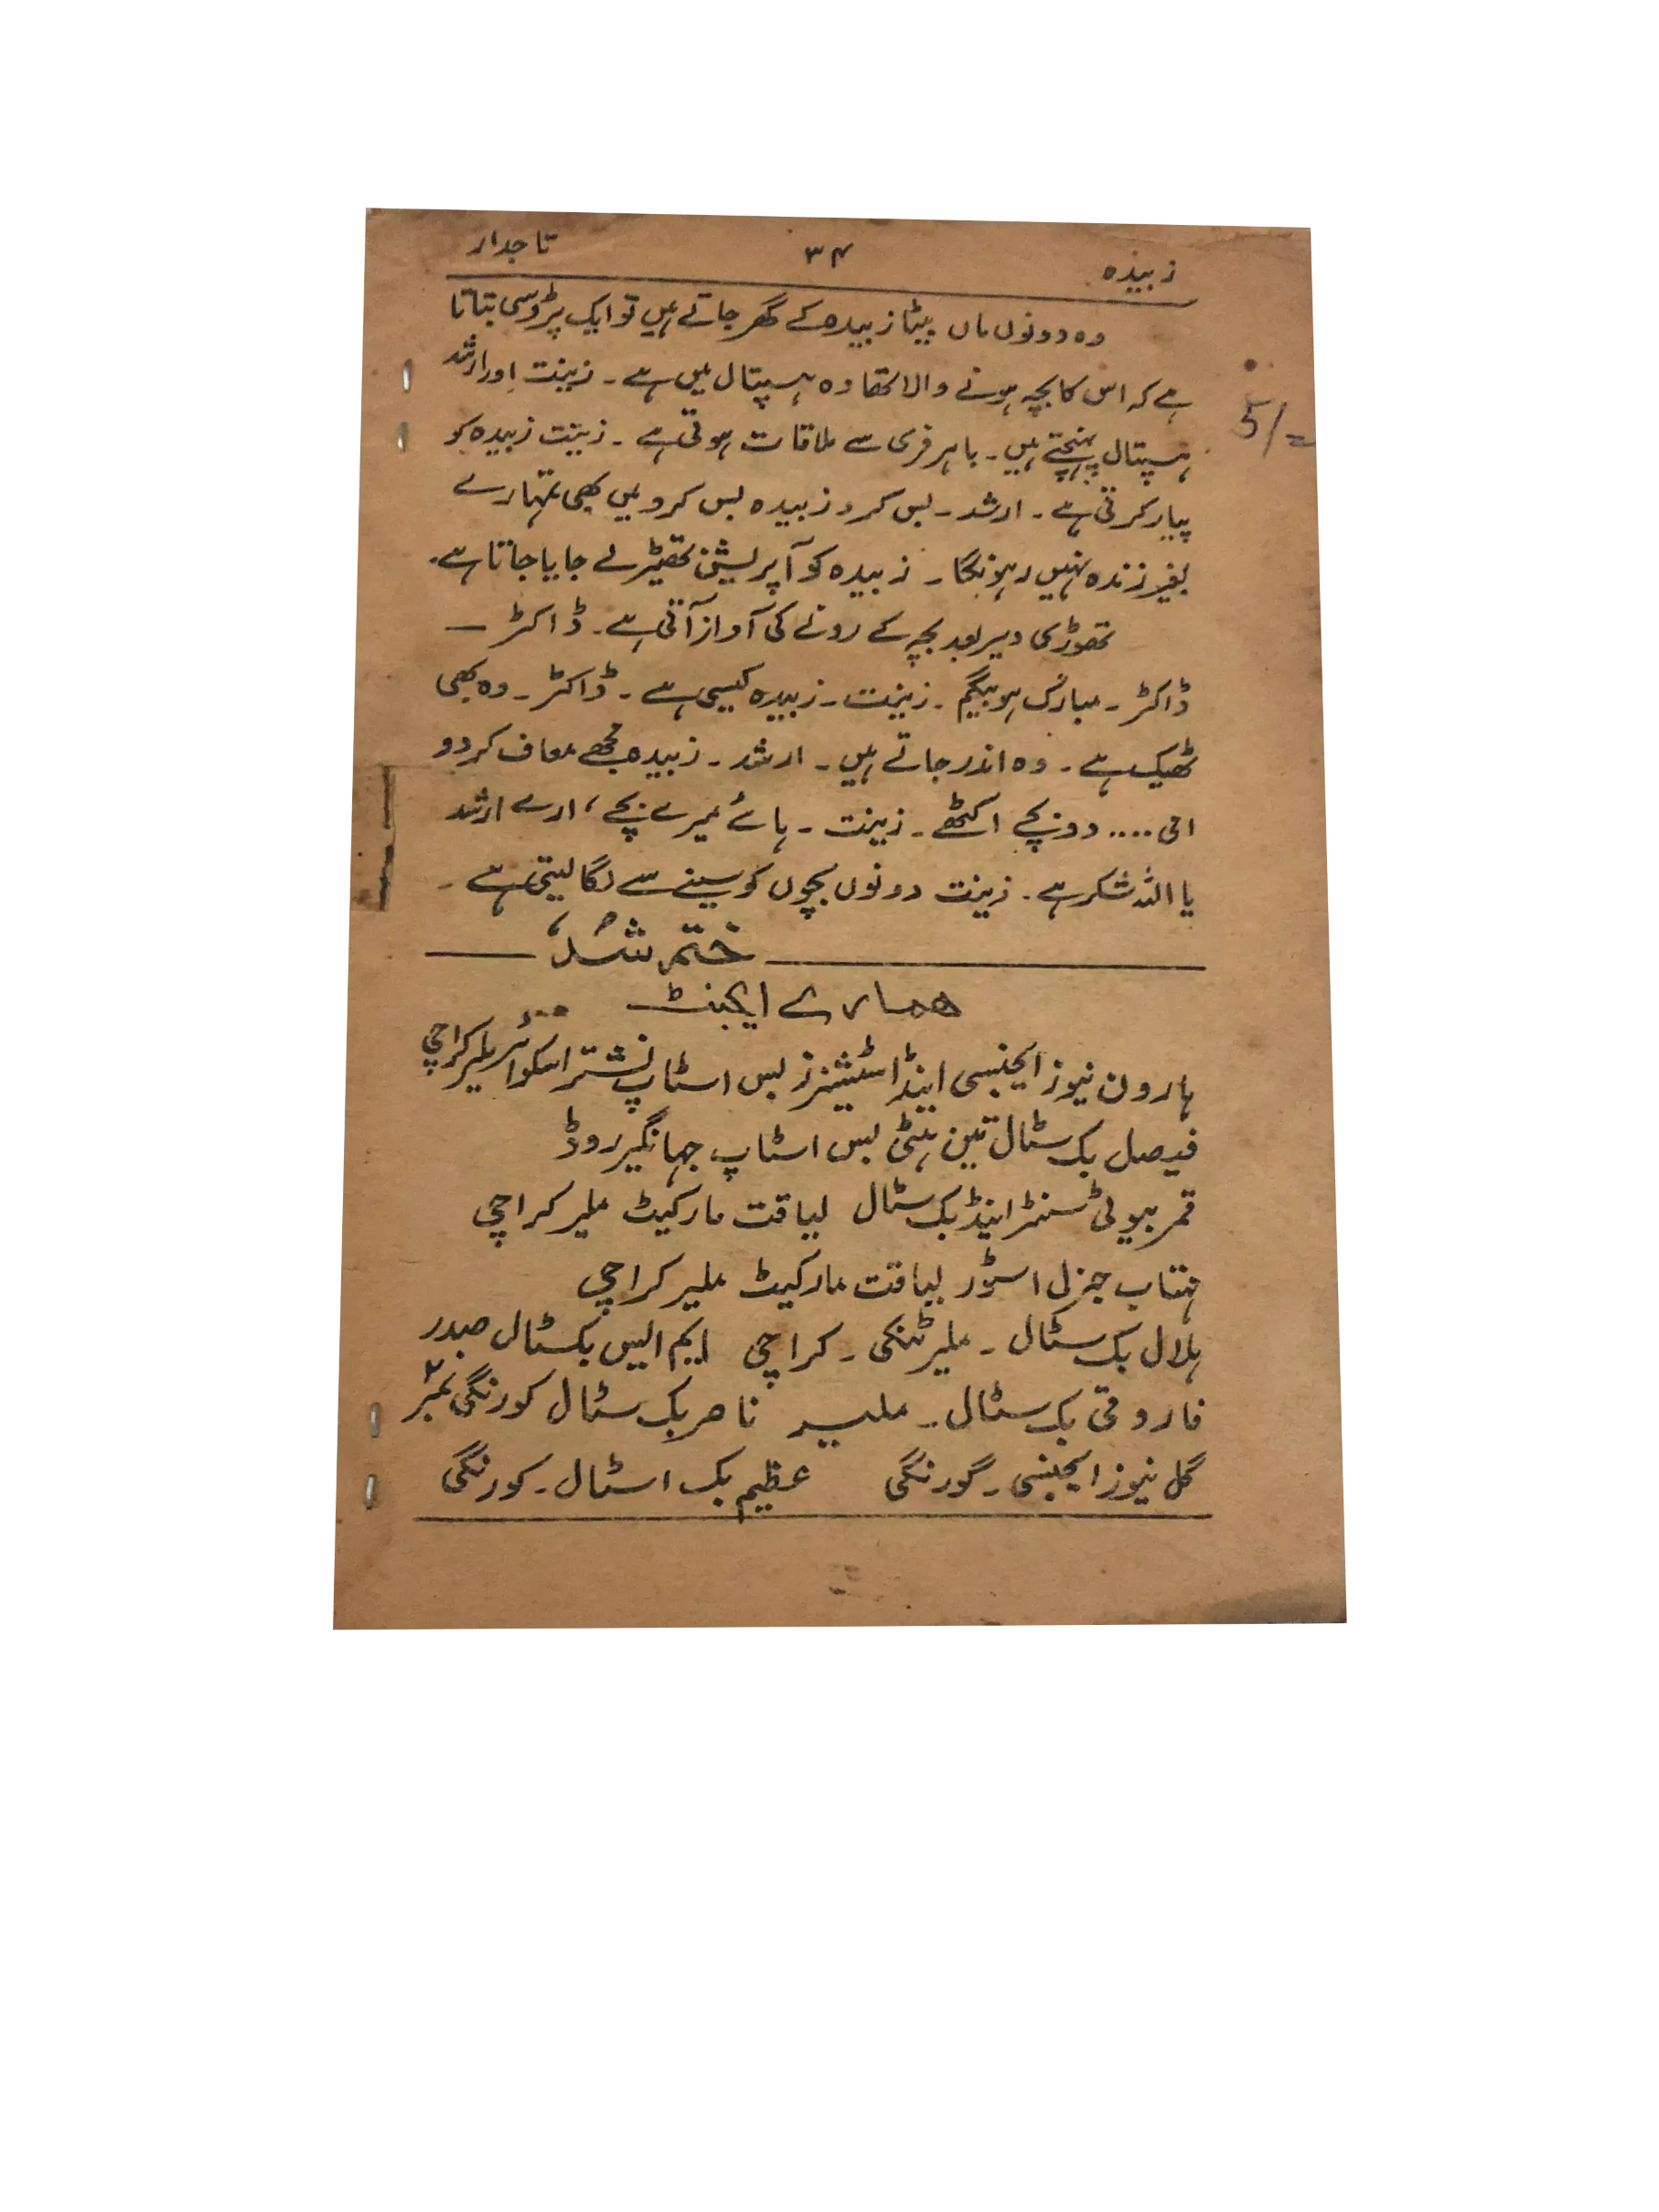 زبیدہ ۳۴ تاجدار
وہ دونوں ماں بیٹا زبیدہ کے گھر جاتے ہیں تو ایک پڑوسی بتاتا
ہے کہ اس کا بچہ ہونے والا تھا وہ ہسپتال میں ہے ۔ زینت اور ارشد
5/=
ہسپتال پہنچتے ہیں ۔ باہر فری سے ملاقات ہوتی ہے ۔ زینت زبیدہ کو
پیار کرتی ہے ۔ ارشد ۔ بس کرو زبیدہ بس کرو میں بھی تمہارے
بغیر زندہ نہیں رہونگا ۔ زبیدہ کو آپریشن تھیٹر لے جایا جاتا ہے ۔
تھوڑی دیر بعد بچہ کے رونے کی آواز آتی ہے ۔ ڈاکٹر —
ڈاکٹر ۔ مبارک ہو بیگم ۔ زینت ۔ زبیدہ کیسی ہے ۔ ڈاکٹر ۔ وہ بھی
ٹھیک ہے ۔ وہ اندر جاتے ہیں ۔ ارشد ۔ زبیدہ مجھے معاف کر دو
امی .... دو بچے اکٹھے ۔ زینت ۔ ہائے میرے بچے ، ارے ارشد
یا اللہ شکر ہے ۔ زینت دونوں بچوں کو سینے سے لگا لیتی ہے ۔
ختم شُد
ہمارے ایجنٹ
ہارون نیوز ایجنسی اینڈ اسٹیشنرز بس اسٹاپ نشتر اسکوائر ملیر کراچی
فیصل بک سٹال تین ہٹی بس اسٹاپ جہانگیر روڈ
قمر بیوٹی سنٹر اینڈ بک سٹال لیاقت مارکیٹ ملیر کراچی
مہتاب جنرل اسٹور لیاقت مارکیٹ ملیر کراچی
ہلال بک سٹال ۔ ملیر ٹنکی ۔ کراچی ایم ایس بکسٹال صدر
فاروقی بک سٹال ۔ ملیر ناصر بک سٹال کورنگی نمبر ۲
گل نیوز ایجنسی ۔ گورنگی عظیم بک اسٹال ۔ کورنگی